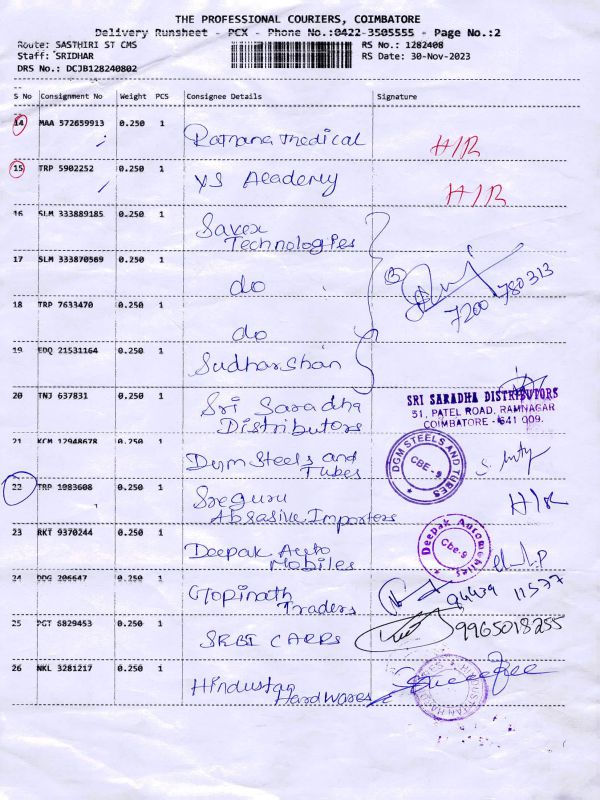 THE PROFESSIONAL COURIERS, COIMBATORE
Delivery Runsheet - PCX - Phone No.:0422-3505555 - Page No.:2
Route: SASTHIRI ST CMS
RS No.: 1282408
Staff: SRIDHAR
RS Date: 30-Nov-2023
DRS No.: DCJB128240802
S No Consignment No Weight PCS Consignee Details Signature
14 MAA 572659913 0.250 1 Ratnana medical H/R
15 TRP 5902252 0.250 1 YS Academy H/R
16 SLM 333889185 0.250 1 Savex
Technologies
17 SLM 333870569 0.250 1 do
7200 780313
18 TRP 7633470 0.250 1 do
19 EDQ 21531164 0.250 1 Sudharshan
20 TNJ 637831 0.250 1 Sri Saradha
Distributors
SRI SARADHA DISTRIBUTORS
31, PATEL ROAD, RAMNAGAR
COIMBATORE - 641 009.
21 KCM 12948678 0.250 1 Dgm Steels and
Tubes
DGM STEELS AND TUBES
CBE-9
22 TRP 1983608 0.250 1 Sreguru
Abrasive Importers
H/R
23 RKT 9370244 0.250 1 Deepak Auto
Mobiles
Deepak Automobiles
Cbe-9
24 DDG 206647 0.250 1 Gopinath
Traders
11537
25 PGT 6829453 0.250 1 SRGI CARRS 9965018255
26 NKL 3281217 0.250 1 Hindustan
Hardwares